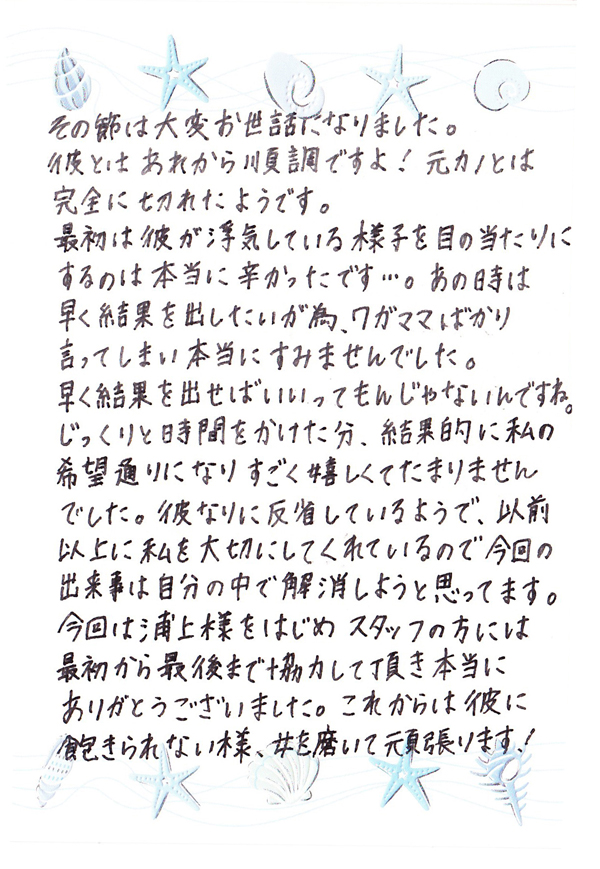 その節は大変お世話になりました。
彼とはあれから順調ですよ！元カノとは
完全に切れたようです。
最初は彼が浮気している様子を目の当たりに
するのは本当に辛かったです…。あの時は
早く結果を出したいが為、ワガママばかり
言ってしまい本当にすみませんでした。
早く結果を出せばいいってもんじゃないんですね。
じっくりと時間をかけた分、結果的に私の
希望通りになりすごく嬉しくてたまりません
でした。彼なりに反省しているようで、以前
以上に私を大切にしてくれているので今回の
出来事は自分の中で解消しようと思ってます。
今回は浦上様をはじめスタッフの方には
最初から最後まで協力して頂き本当に
ありがとうございました。これからは彼に
飽きられない様、女を磨いて頑張ります！